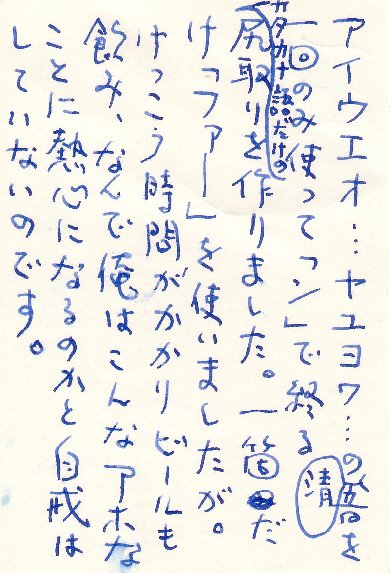 アイウエオ…ヤユヨワ…の音を
清
一回のみ使って「ン」で終る
カタカナ語だけの
尻取りを作りました。一箇だ
け「ファー」を使いましたが。
けっこう時間がかかりビールも
飲み、なんで俺はこんなアホな
ことに熱心になるのかと自戒は
していないのです。